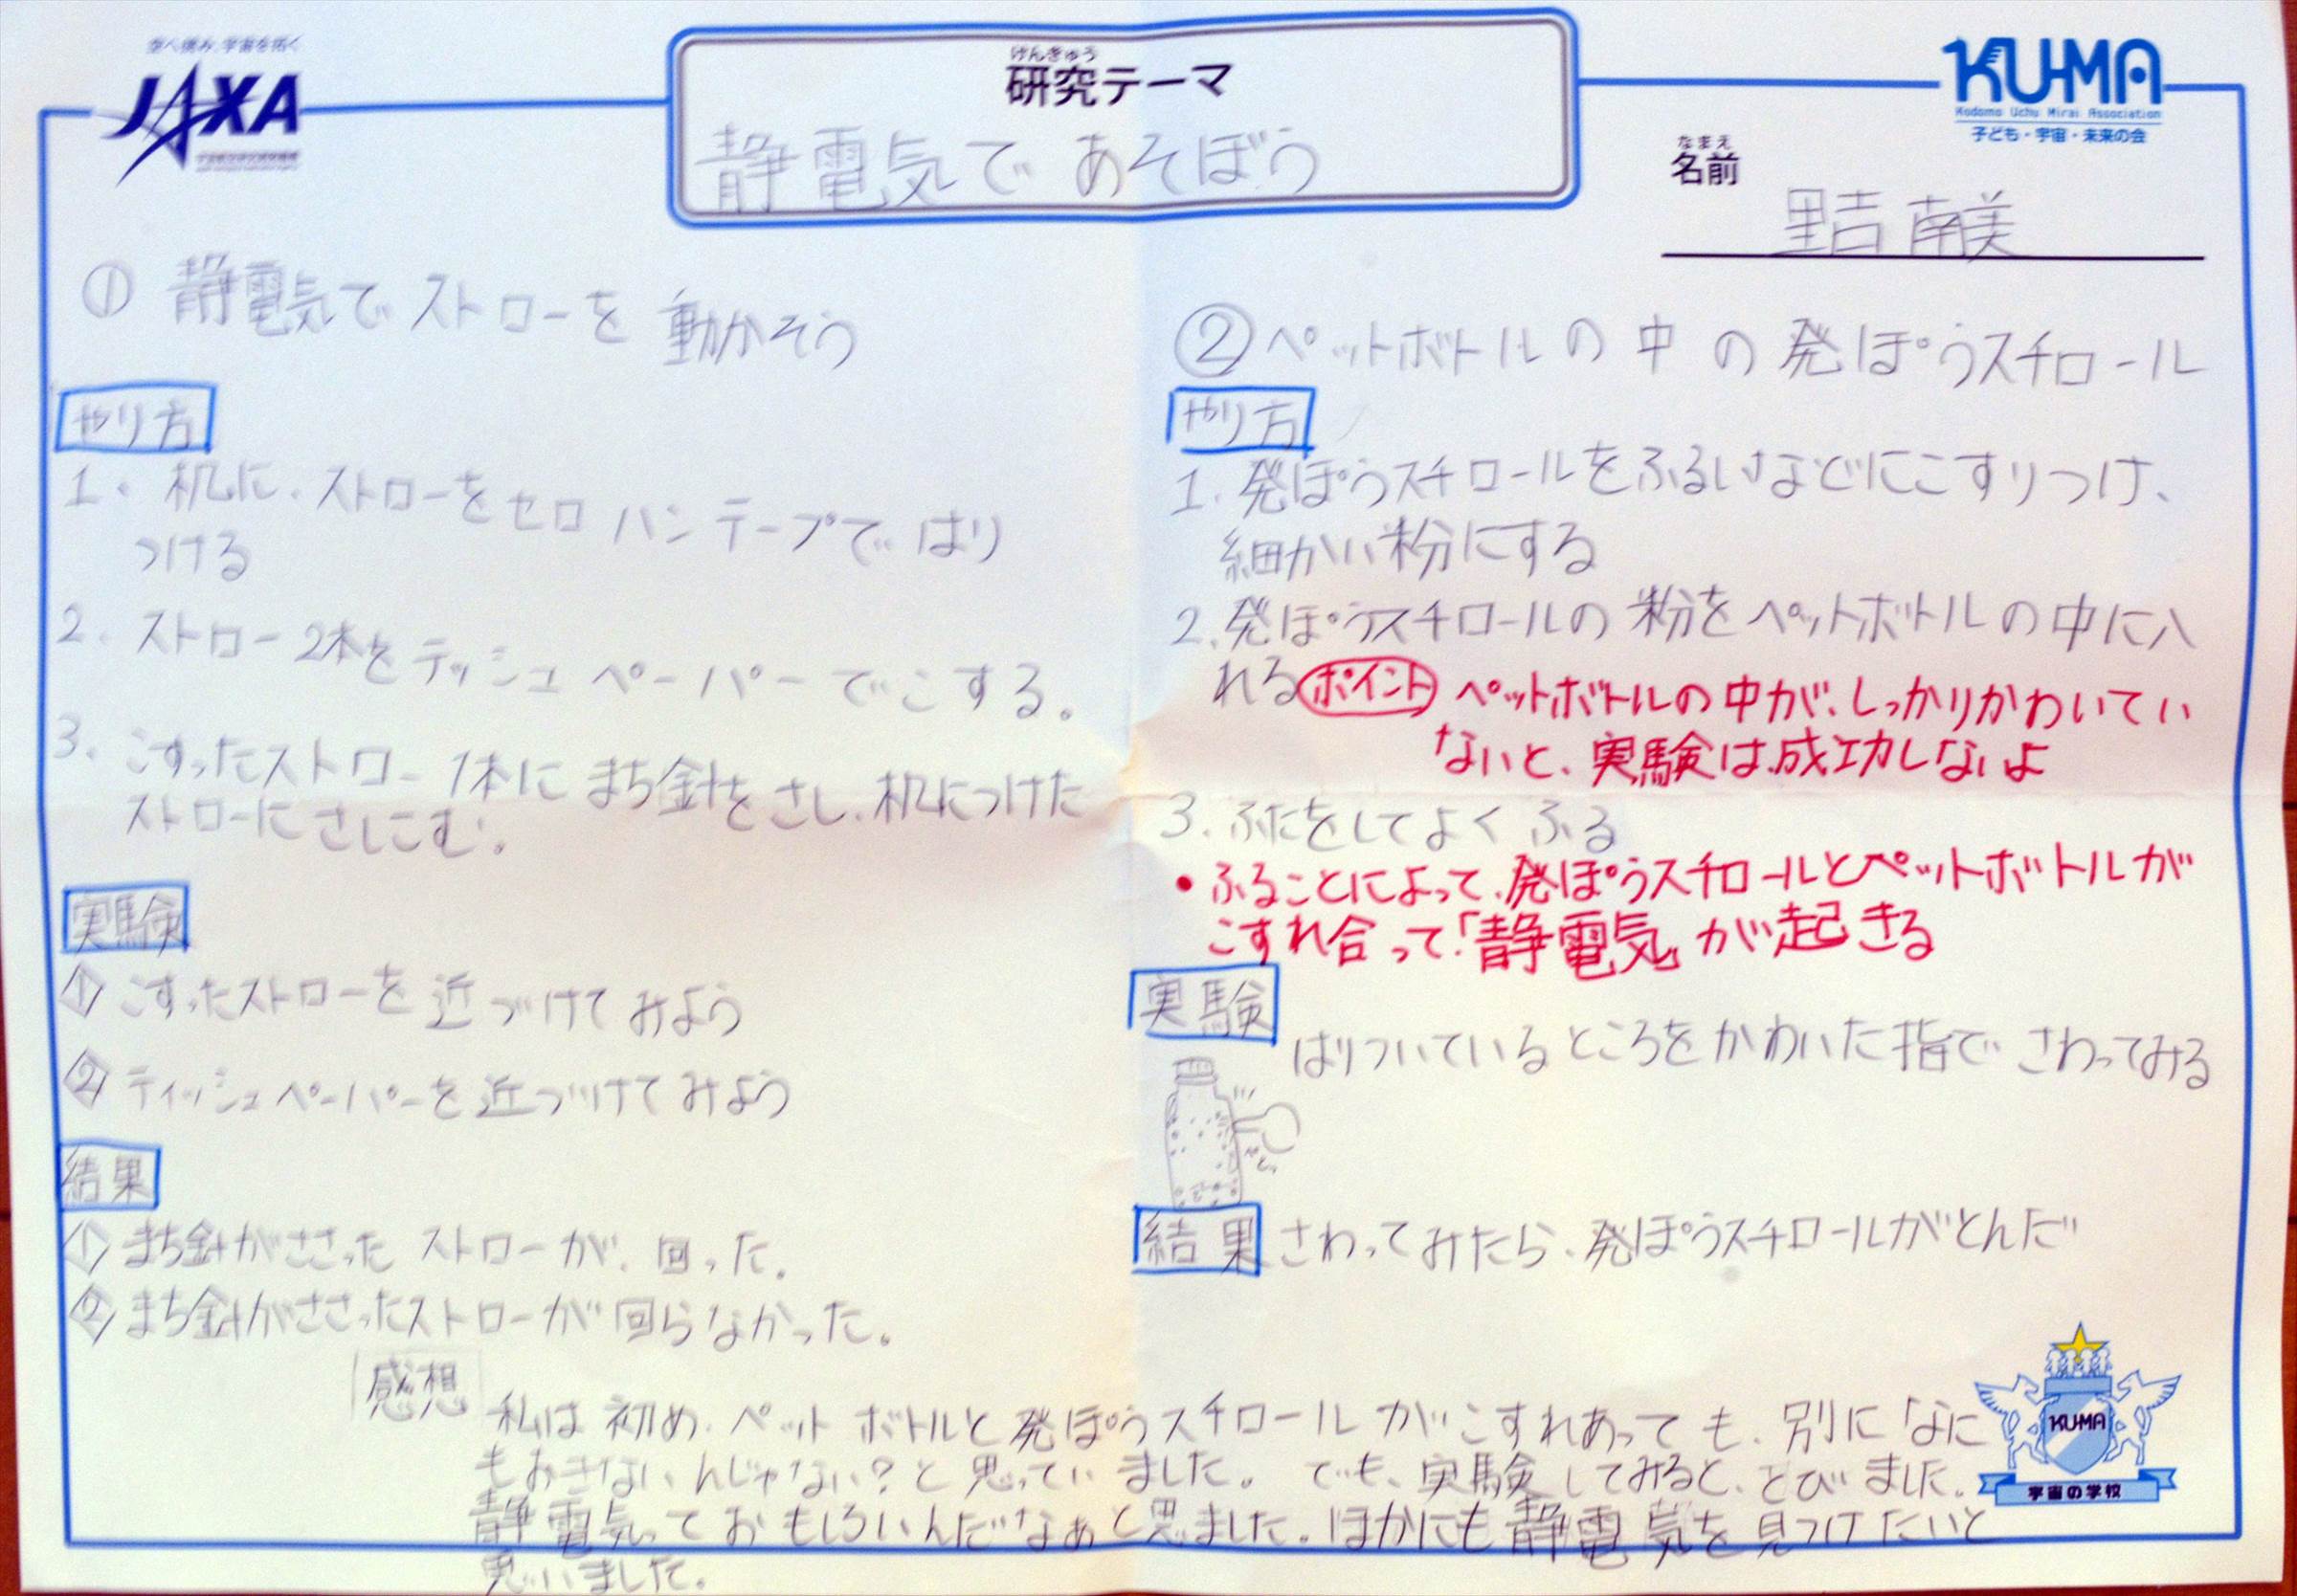 空へ挑み、宇宙を拓く
JAXA
けんきゅう
研究テーマ
静電気で あそぼう
KUMA
Kodomo Uchu Mirai Association
子ども・宇宙・未来の会
なまえ
名前
野吉 南美
① 静電気でストローを動かそう
やり方
1. 机に、ストローをセロハンテープではり
つける
2. ストロー2本をテッシュペーパーでこする。
3. こすったストロー1本にまち針をさし、机につけた
ストローにさしこむ。
実験
① こすったストローを近づけてみよう
② ティッシュペーパーを近づけてみよう
結果
① まち針がささったストローが、回った。
② まち針がささったストローが回らなかった。
② ペットボトルの中の発ぽうスチロール
やり方
1. 発ぽうスチロールをふるいなどにこすりつけ、
細かい粉にする
2. 発ぽうスチロールの粉をペットボトルの中に入
れる ポイント ペットボトルの中が、しっかりかわいてい
ないと、実験は成功しないよ
3. ふたをしてよくふる
・ふることによって、発ぽうスチロールとペットボトルが
こすれ合って「静電気」が起きる
実験
はりついているところをかわいた指でさわってみる
結果 さわってみたら、発ぽうスチロールがとんだ
感想
私は初め、ペットボトルと発ぽうスチロールがこすれあっても、別になに
もおきないんじゃない?と思っていました。でも、実験してみると、とびました。
静電気っておもしろいんだなぁと思ました。ほかにも静電気を見つけたいと
思いました。
KUMA
宇宙の学校